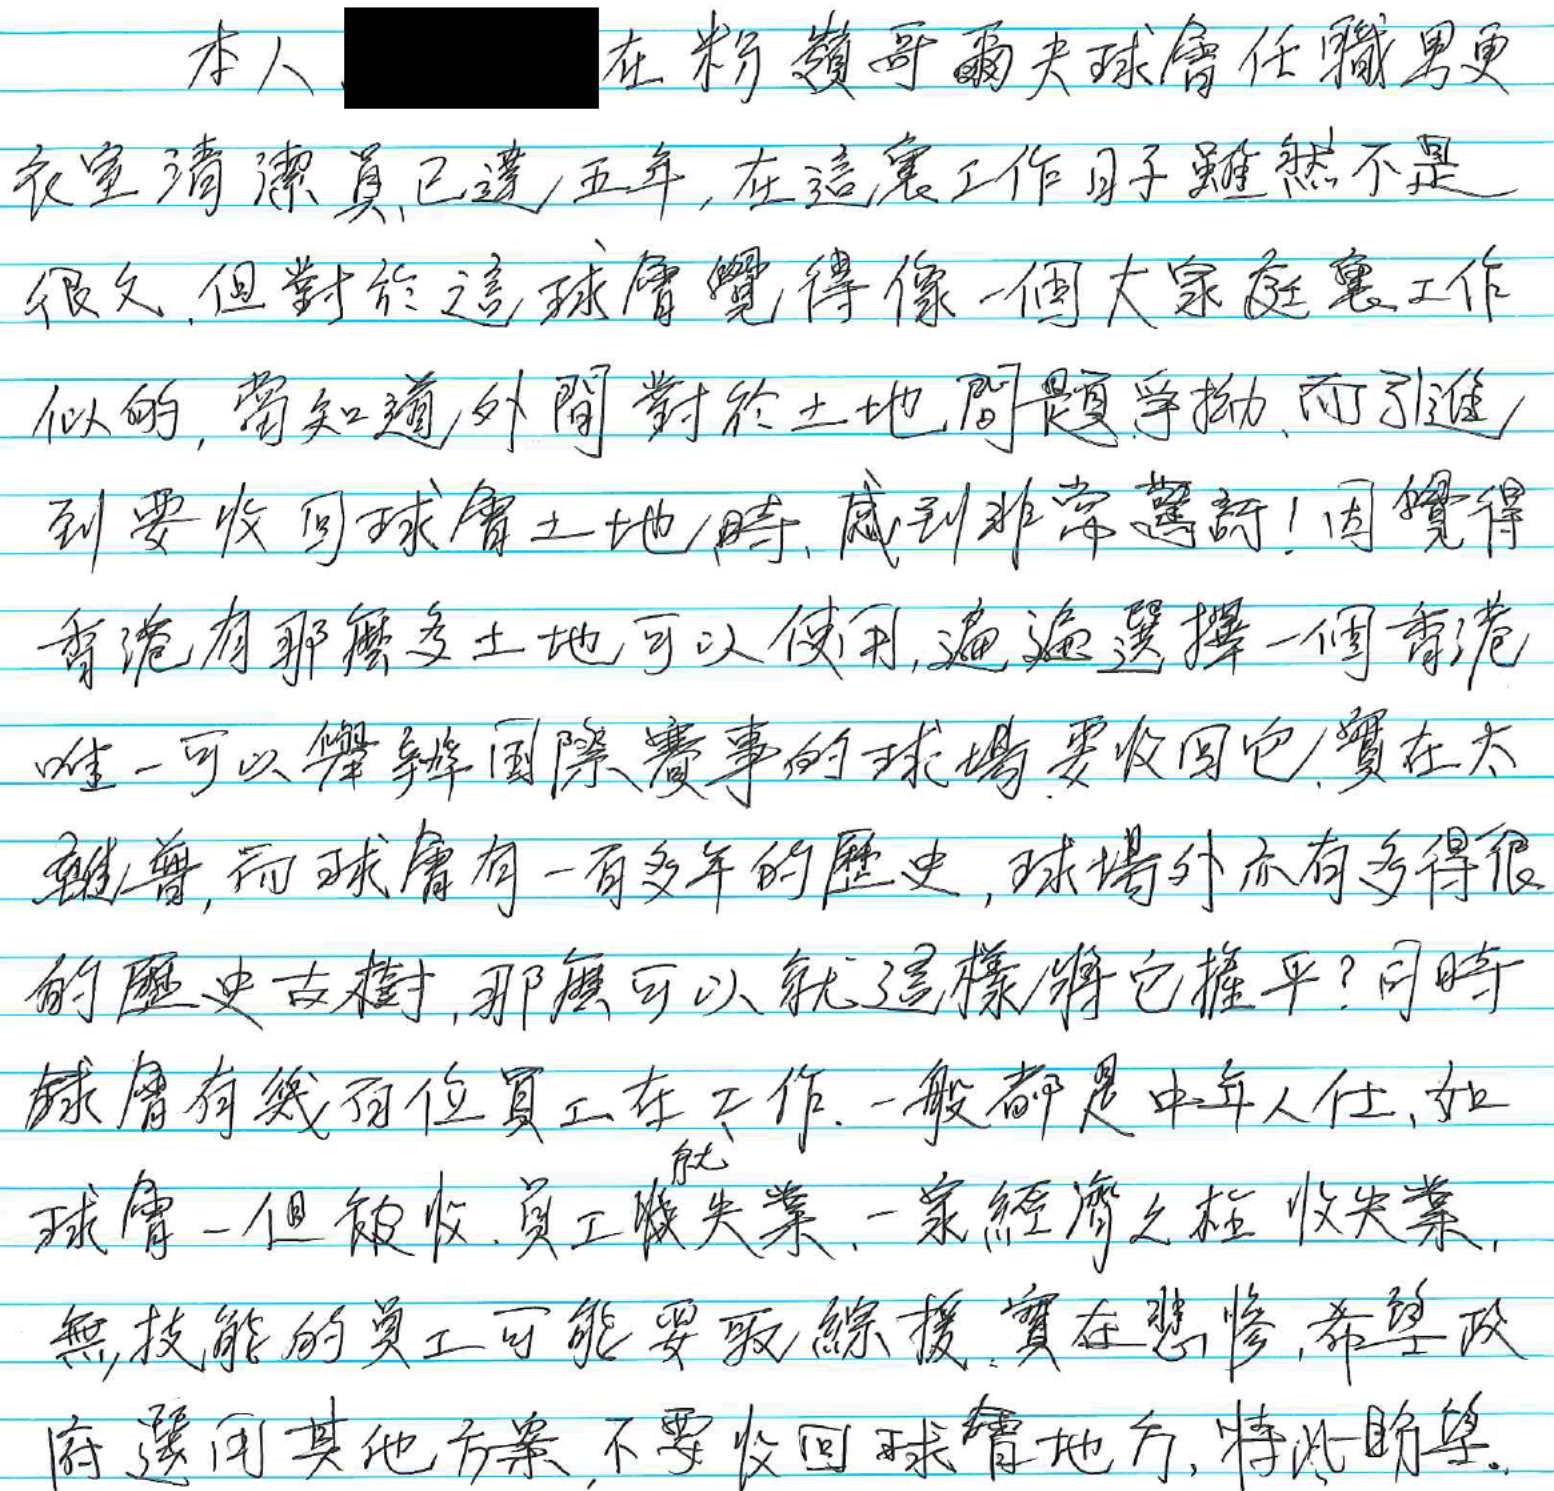 本人 在粉嶺哥爾夫球會任職男更
衣室清潔員、已達五年,在這裏工作日子雖然不是
很久、但對於這球會覺得像一個大家庭裏工作
似的,當知道外間對於土地問題爭拗、而引進
到要收回球會土地時、感到非常驚訝!因覺得
香港有那麼多土地可以使用,遍遍選擇一個香港
唯一可以舉辦國際賽事的球場要收回它、實在太
離普,而球會有一百多年的歷史,球場外亦有多得很
的歷史古樹,那麼可以就這樣將它摧平?同時
球會有幾百位員工在工作、一般都是中年人仕、如
球會一但被收、員工就失業、一家經濟之柱收失業,
無技能的員工可能要取綜援、實在悲慘,希望政
府選用其他方案,不要收回球會地方,特此盼望。